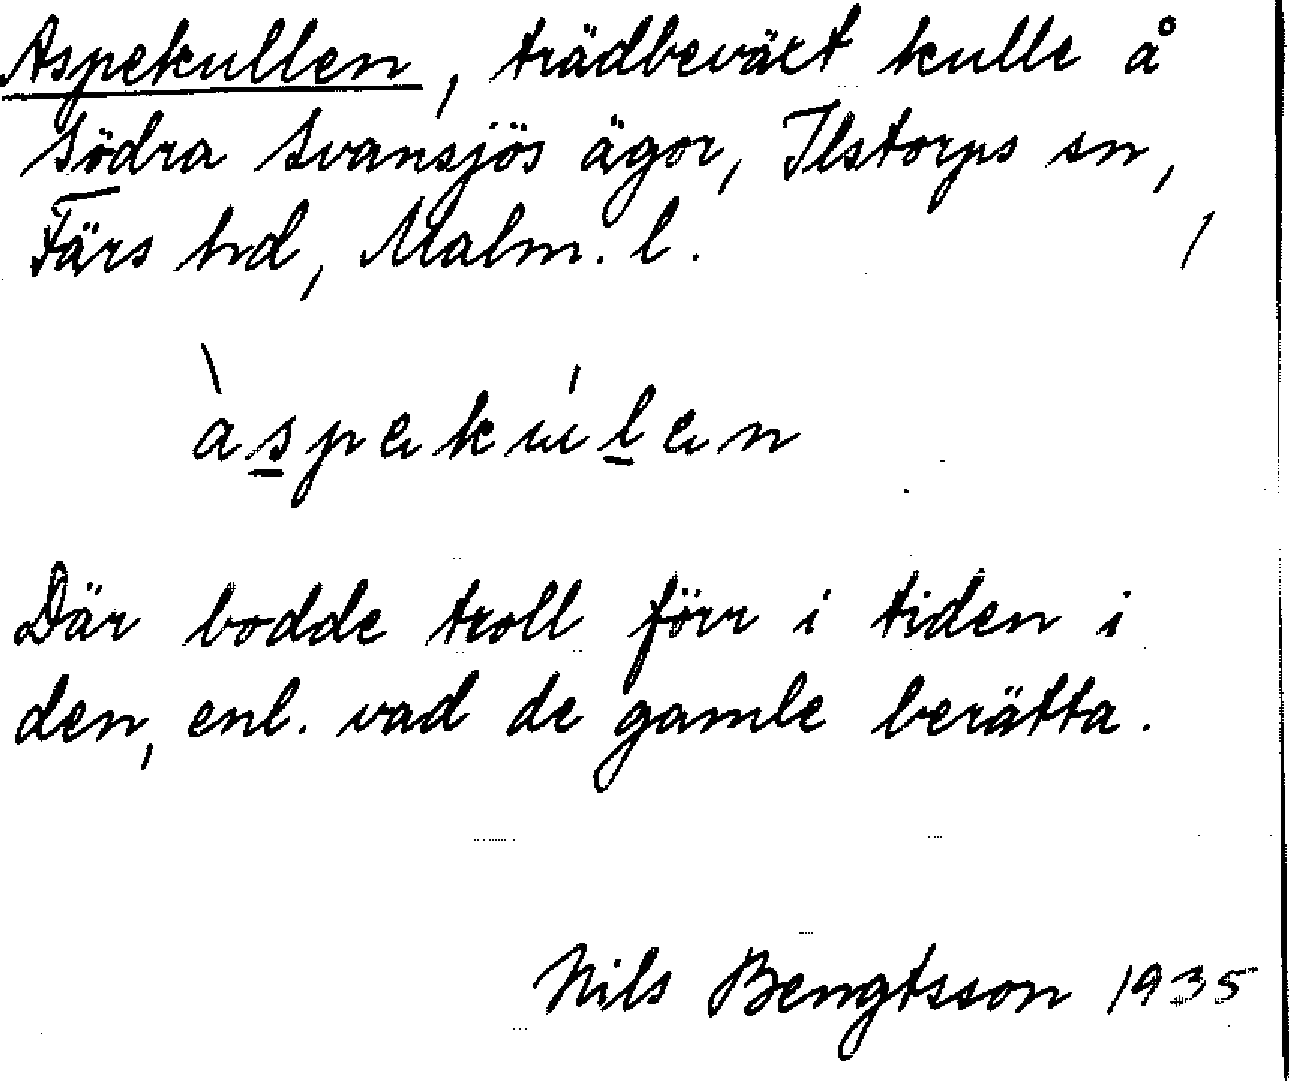 Aspekullen, trädbeväxt kulle å
Södra Svansjös ägor, Ilstorps sn,
Färs hd, Malm. l.
àspekúlen
Där bodde troll förr i tiden i
den, enl. vad de gamle berätta.
Nils Bengtsson 1935